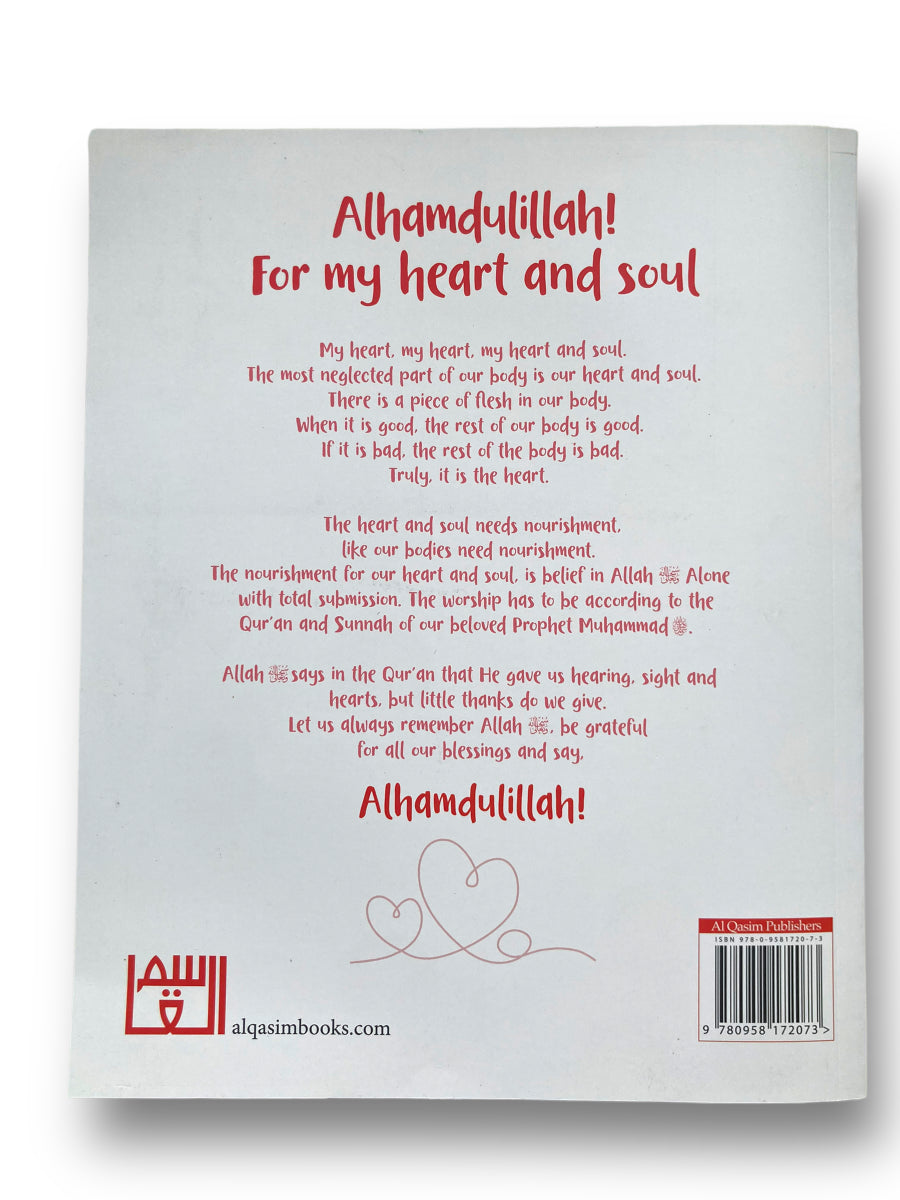 Alhamdulillah!
For my heart and soul
My heart, my heart, my heart and soul.
The most neglected part of our body is our heart and soul.
There is a piece of flesh in our body.
When it is good, the rest of our body is good.
If it is bad, the rest of the body is bad.
Truly, it is the heart.
The heart and soul needs nourishment,
like our bodies need nourishment.
The nourishment for our heart and soul, is belief in Allah Alone
with total submission. The worship has to be according to the
Qur'an and Sunnah of our beloved Prophet Muhammad ﷺ.
Allah says in the Qur'an that He gave us hearing, sight and
hearts, but little thanks do we give.
Let us always remember Allah, be grateful
for all our blessings and say,
Alhamdulillah!
القاسم
alqasimbooks.com
Al Qasim Publishers
ISBN 978-0-9581720-7-3
9 780958 172073 >